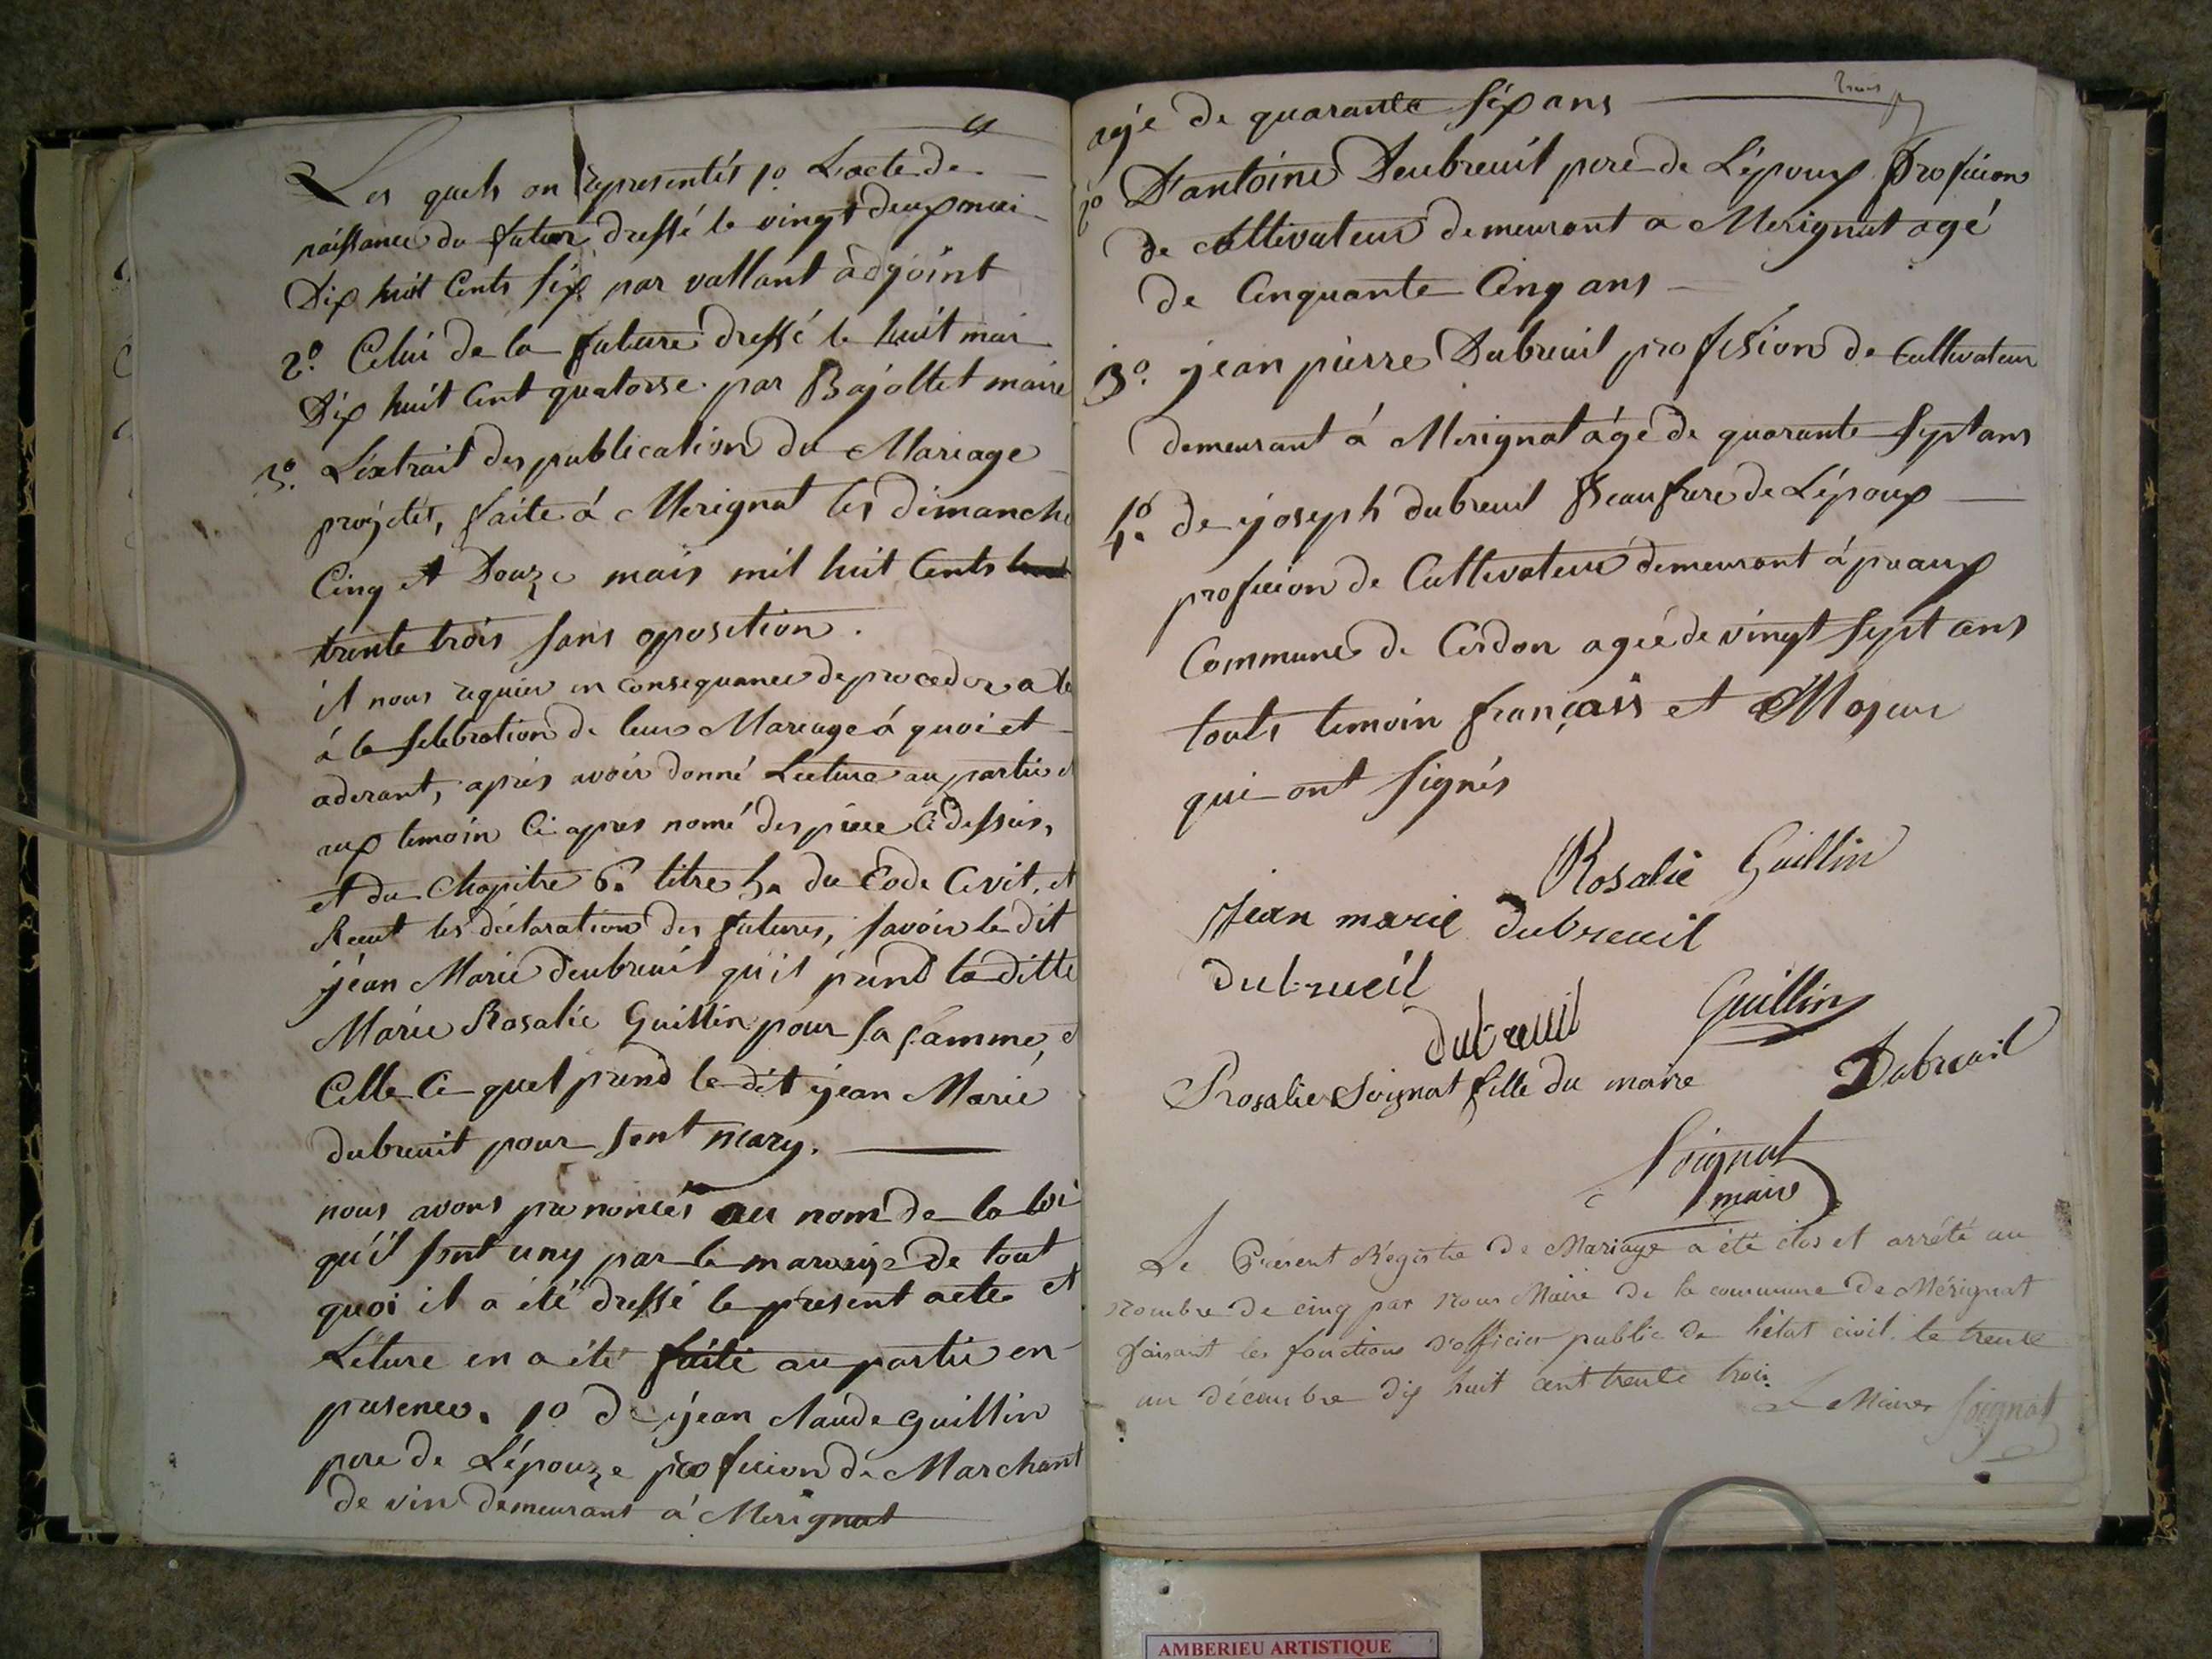 Les quels on representés 1o L'acte de
naissance du futur dressé le vingt deux mai
Dix huit Cents six par vallant adjoint
2o. Celui de la future dressé le huit mai
Dix huit Cent quatorse. par Bajollet maire
3o. L'éxtrait des publication du Mariage
projetés, faite á Merignat les dimanche
Cinq et Douze mais mil huit Cents
trente trois sans oposition.
il nous requier en consequance de proceder a la
á la selebration de leur Mariage á quoi et
aderant, aprés avoir donné Lecture au partie et
aux temoin Ci apres nomé des piece Ci dessus,
et du Chapitre 6. titre 5. du Code Civil, et
Recut les déclaration des futures, savoir le dit
jéan Marie deubreuil qu'il prend la ditte
Marie Rosalie Guillin pour sa famme, et
Celle Ci quel prend le dit jean Marie
dubreuil pour sont mary.
nous avons prononcés au nom de la loi
qu'il sont uny par le maraige de tout
quoi il a été dressé le présent acte et
Léture en a été faite au partie en
presence. 1o de jean claude guillin
pere de L'épouze profecion de Marchant
de vin demeurant á Merignat
agé de quarante six ans
2o D'antoine Deubreuil pere de L'époux profecion
de Cultivateur demeurant a Merignat agé
de Cinquante Cinq ans
3o. jean pierre Dubreuil profesion de Cultivateur
demeurant á Merignat ágé de quarante sept ans
4o. de joseph dubreuil Beaufrere de L'époux
profecion de Cultivateur demeurant á preaux
Commune de Cerdon ageé de vingt sept ans
touts temoin français et Majeur
qui ont signés
Rosalie Guillin
jean marie dubreuil
dubrueil
dubreuil Guillin
Rosalie Soignat fille du maire Dubreuil
Soignat
maire
Le Présent Régistre de Mariage a été clos et arrêté au
nombre de cinq par nous Maire de la commune de Mérignat
faisant les fonctions d'officier public de l'état civil. le trente
un décembre dix huit cent trente trois.
Le Maire Soignat
AMBERIEU ARTISTIQUE